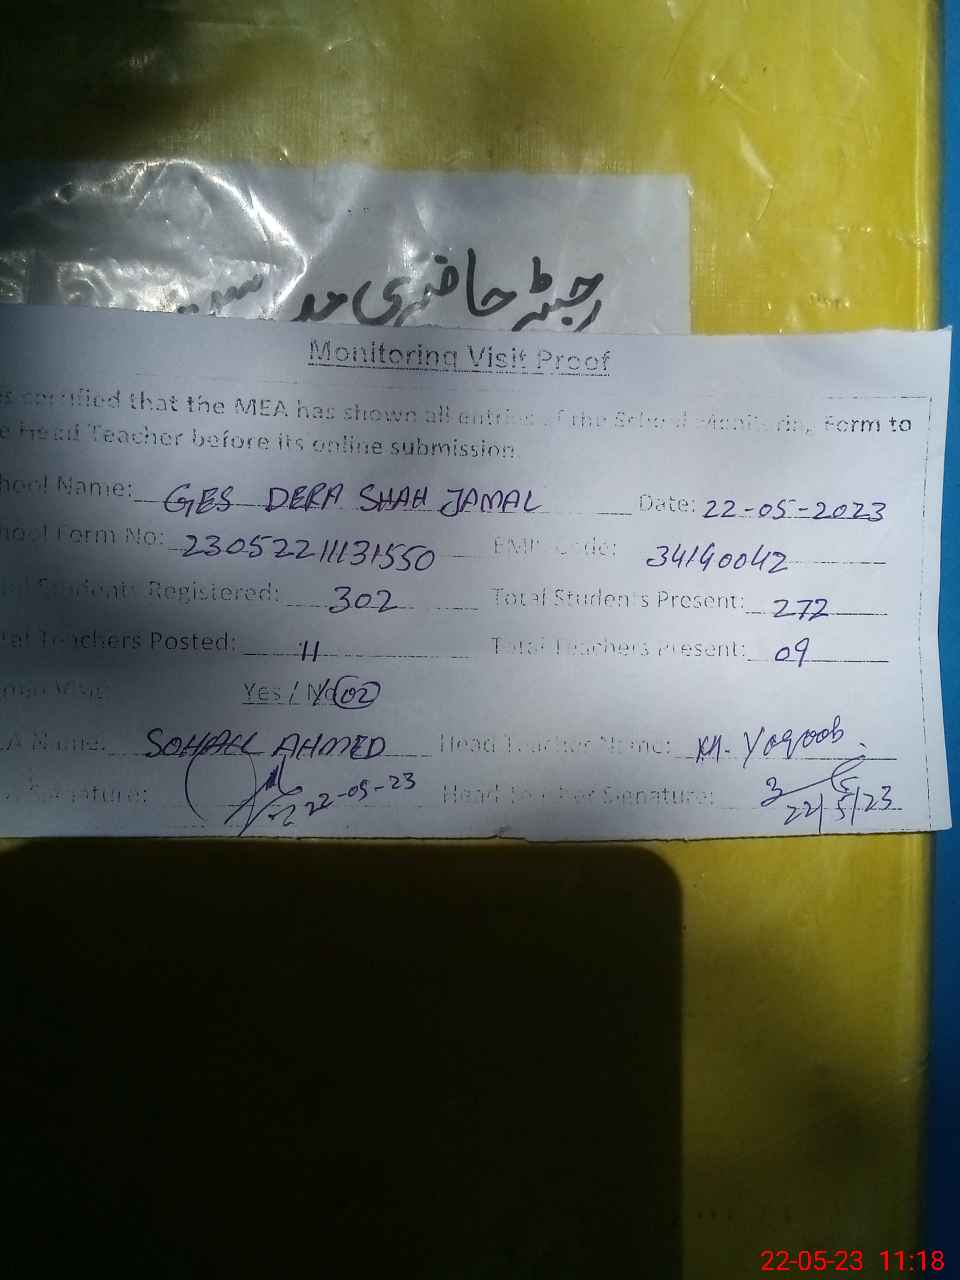 رجسٹر حاضری مدرسین
Monitoring Visit Proof
certified that the MEA has shown all entries of the School Monitoring Form to
Head Teacher before its online submission.
Name: GES DERA SHAH JAMAL Date: 22-05-2023
Form No: 23052211131550 EMIS Code: 34140042
Students Registered: 302 Total Students Present: 272
Teachers Posted: 11 Total Teachers Present: 09
Visit: Yes / No 02
Name: SOHAIL AHMED Head Teacher Name: KH. Yaqoob
Signature: 22-05-23 Head Teacher Signature: 22/5/23
22-05-23 11:18